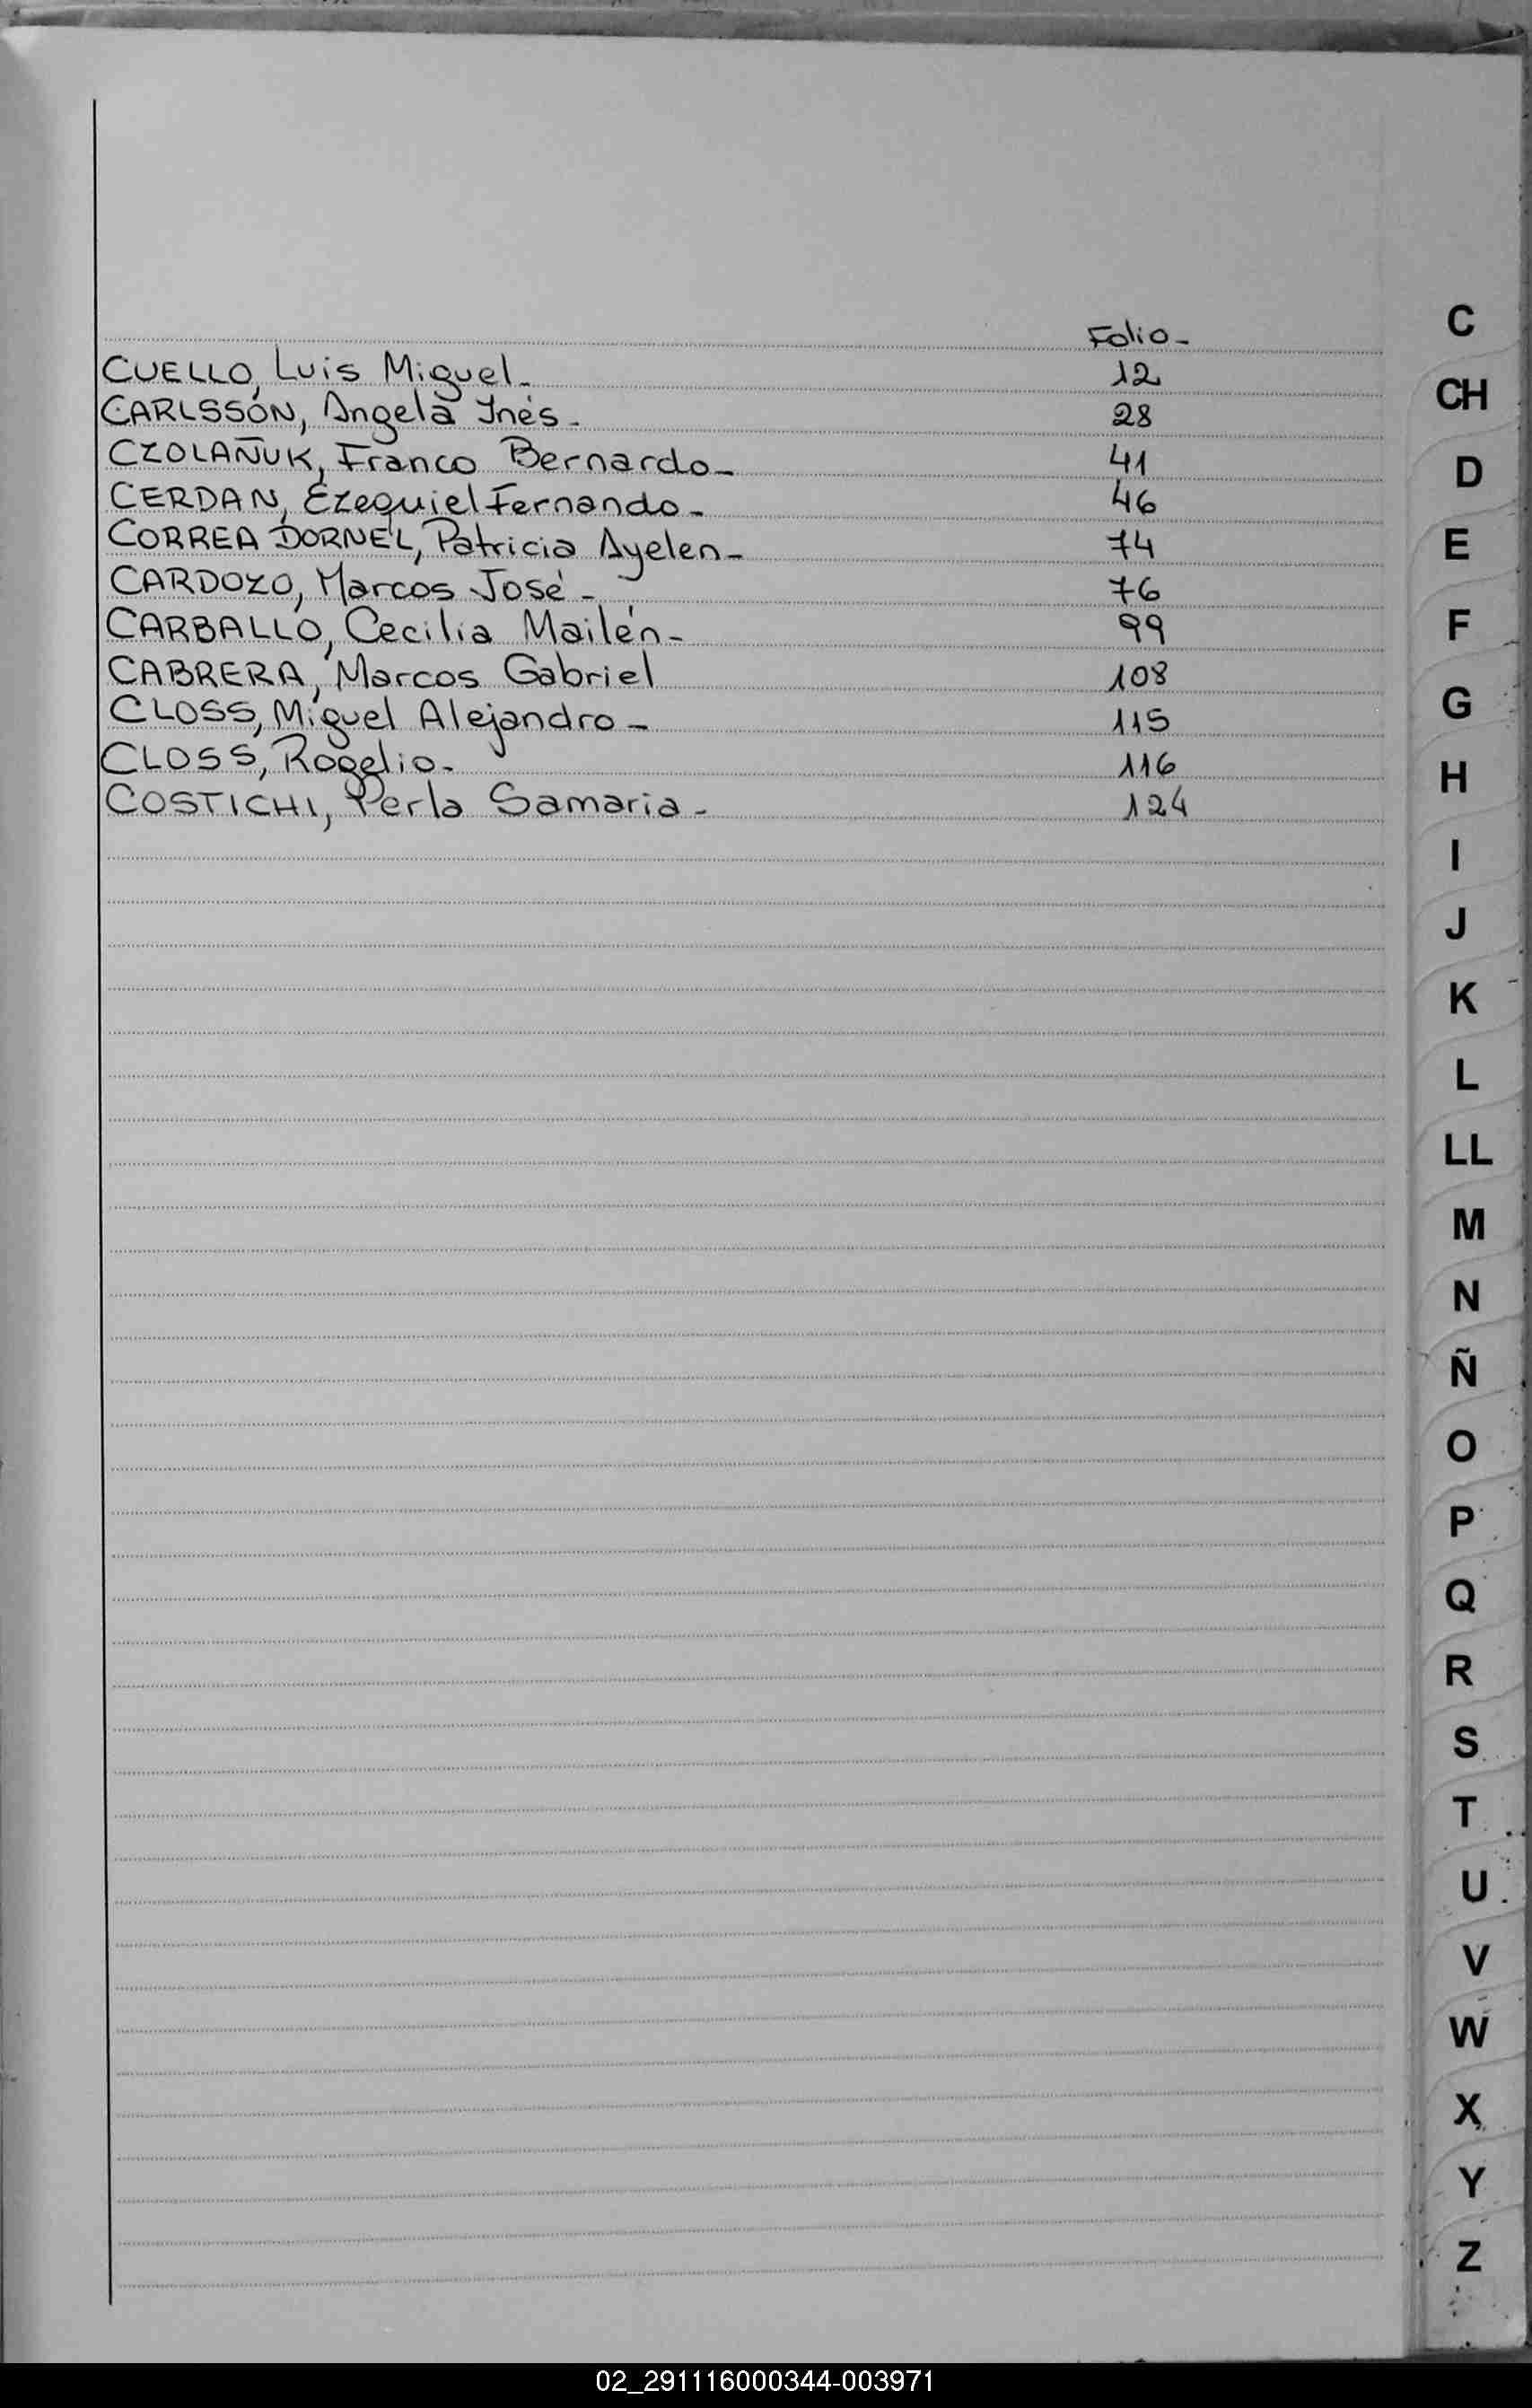 Folio-
CUELLO, Luis Miguel- 12
CARLSSON, Angela Inés- 28
CZOLAÑUK, Franco Bernardo- 41
CERDAN, Ezequiel Fernando- 46
CORREA DORNEL, Patricia Ayelen- 74
CARDOZO, Marcos José- 76
CARBALLO, Cecilia Mailén- 99
CABRERA, Marcos Gabriel 108
CLOSS, Miguel Alejandro- 115
CLOSS, Rogelio- 116
COSTICHI, Perla Samaria- 124
C
CH
D
E
F
G
H
I
J
K
L
LL
M
N
Ñ
O
P
Q
R
S
T
U
V
W
X
Y
Z
02_291116000344-003971